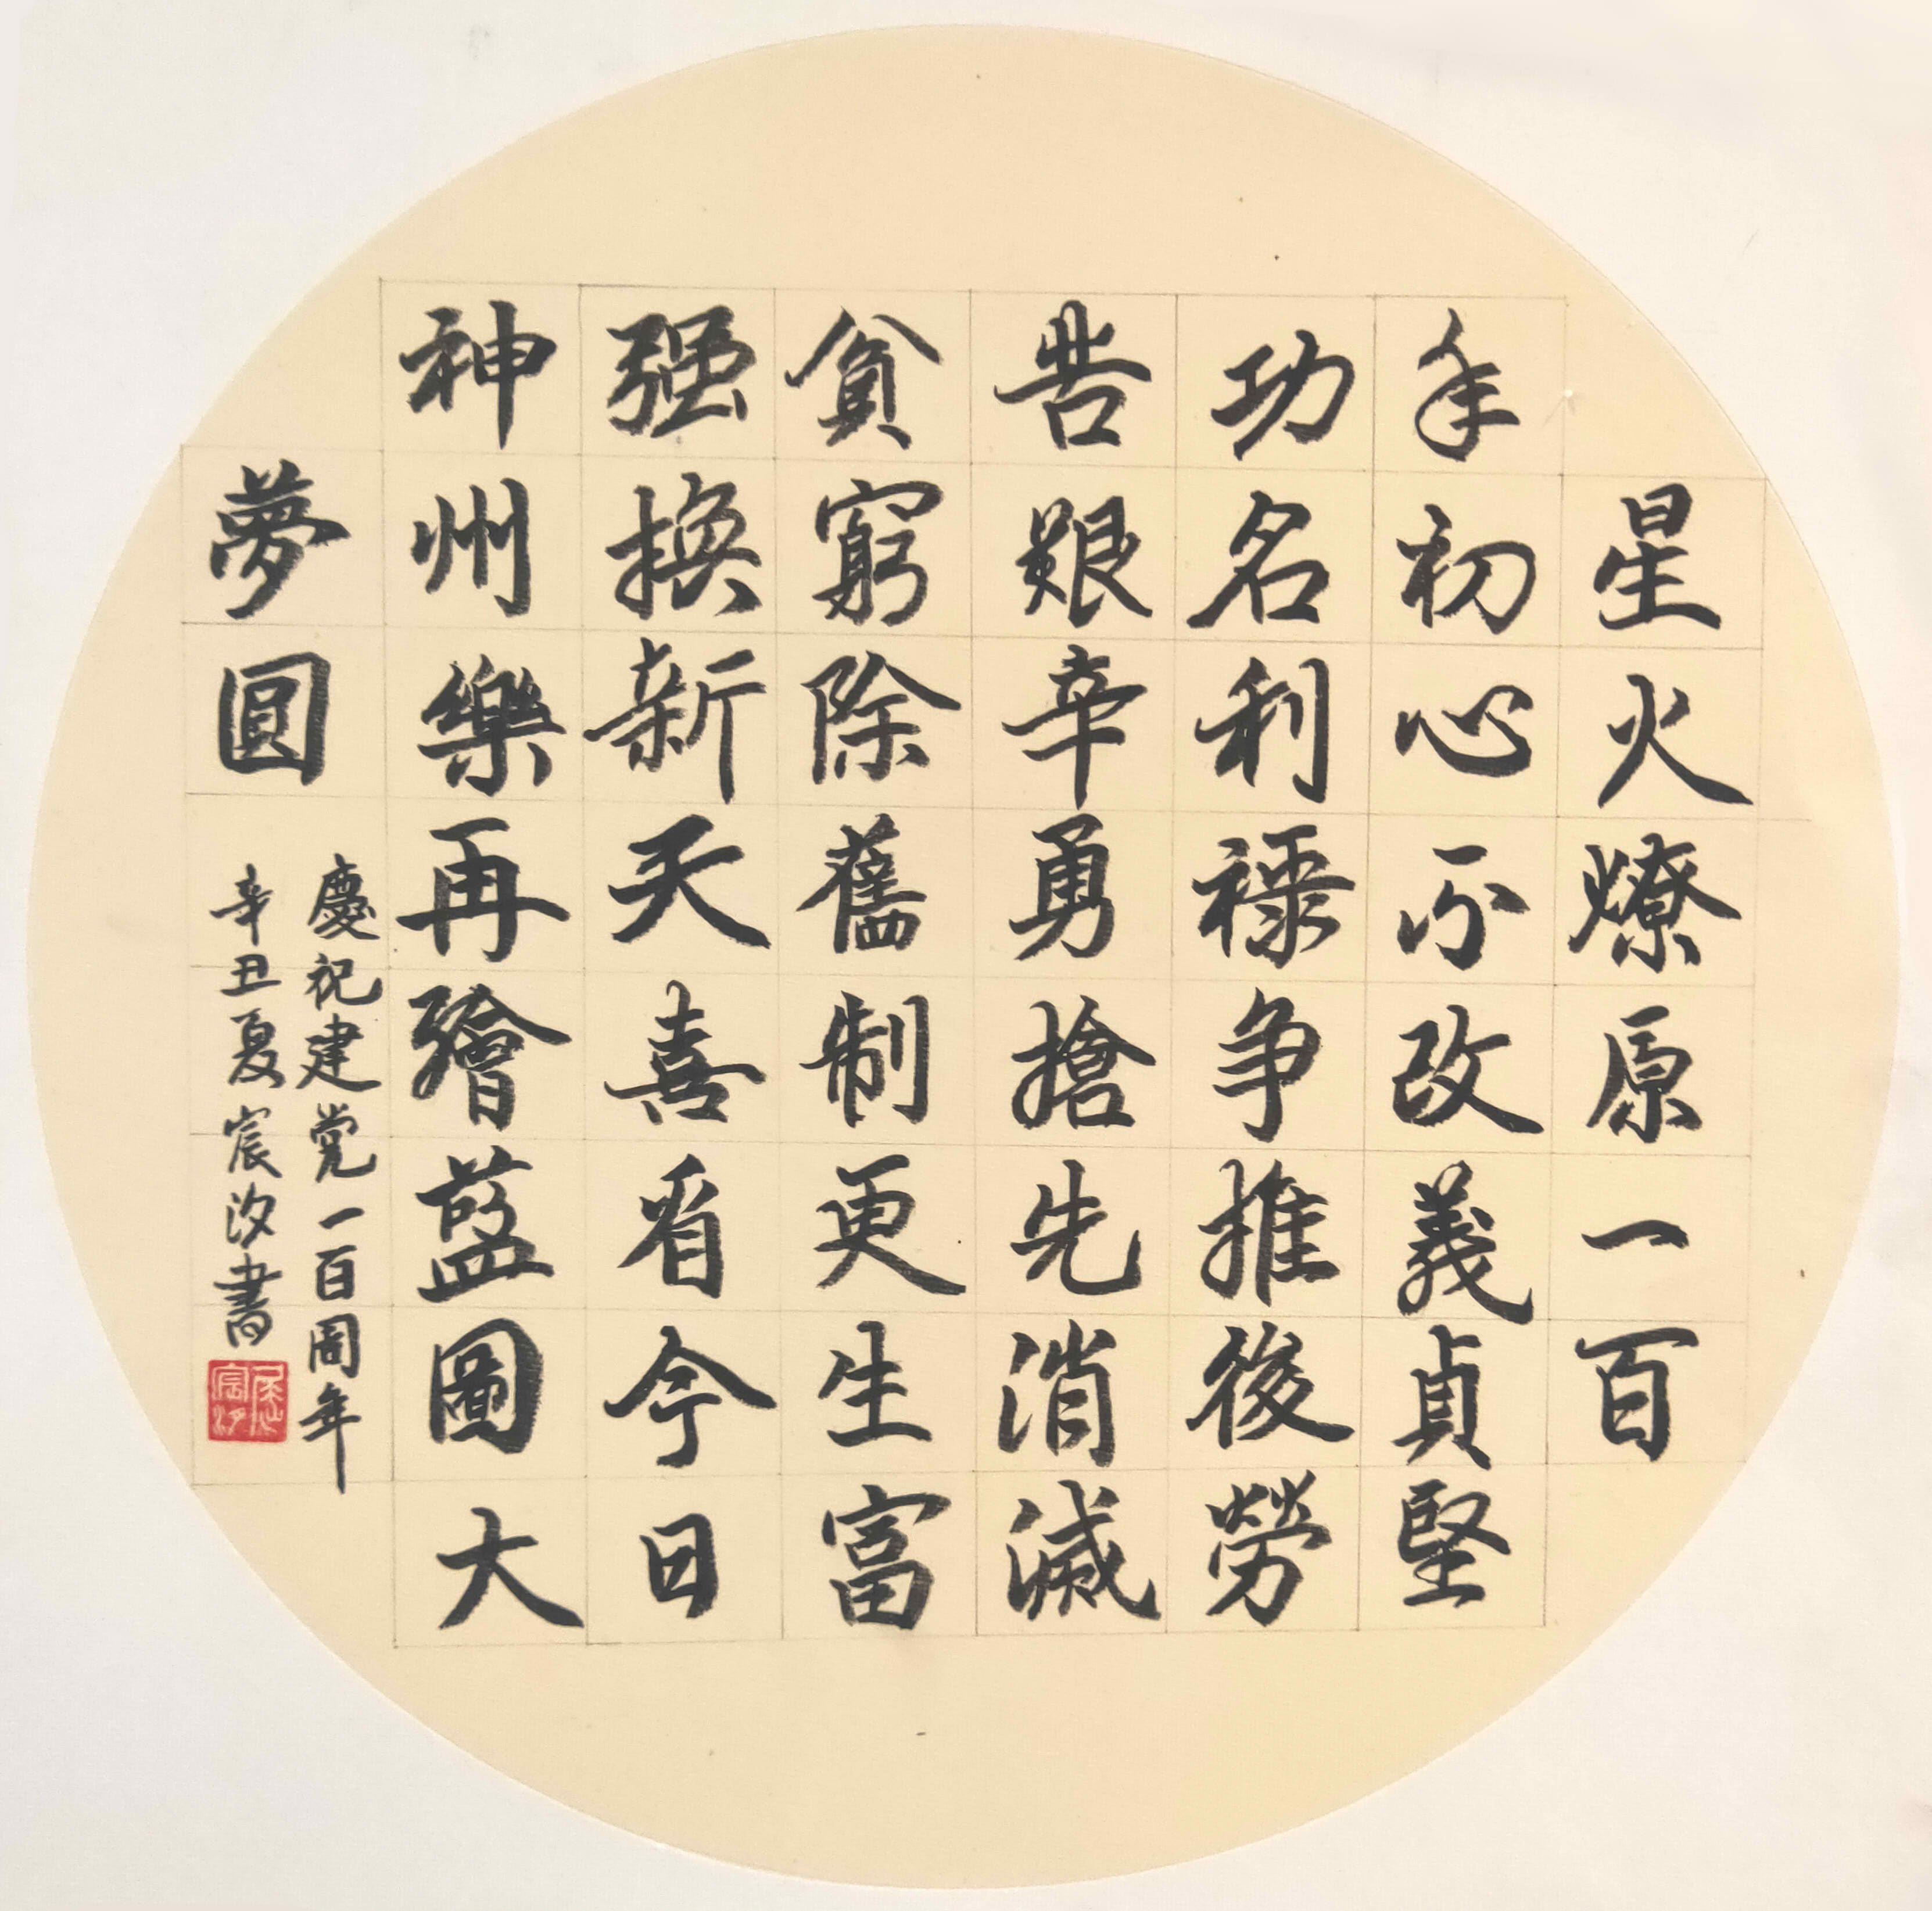 星火燎原一百
年初心不改義貞堅
功名利禄争推後勞
苦艱辛勇搶先消滅
貧窮除舊制更生富
强換新天喜看今日
神州樂再繪藍圖大
夢圓
慶祝建党一百周年
辛丑夏宸汐書